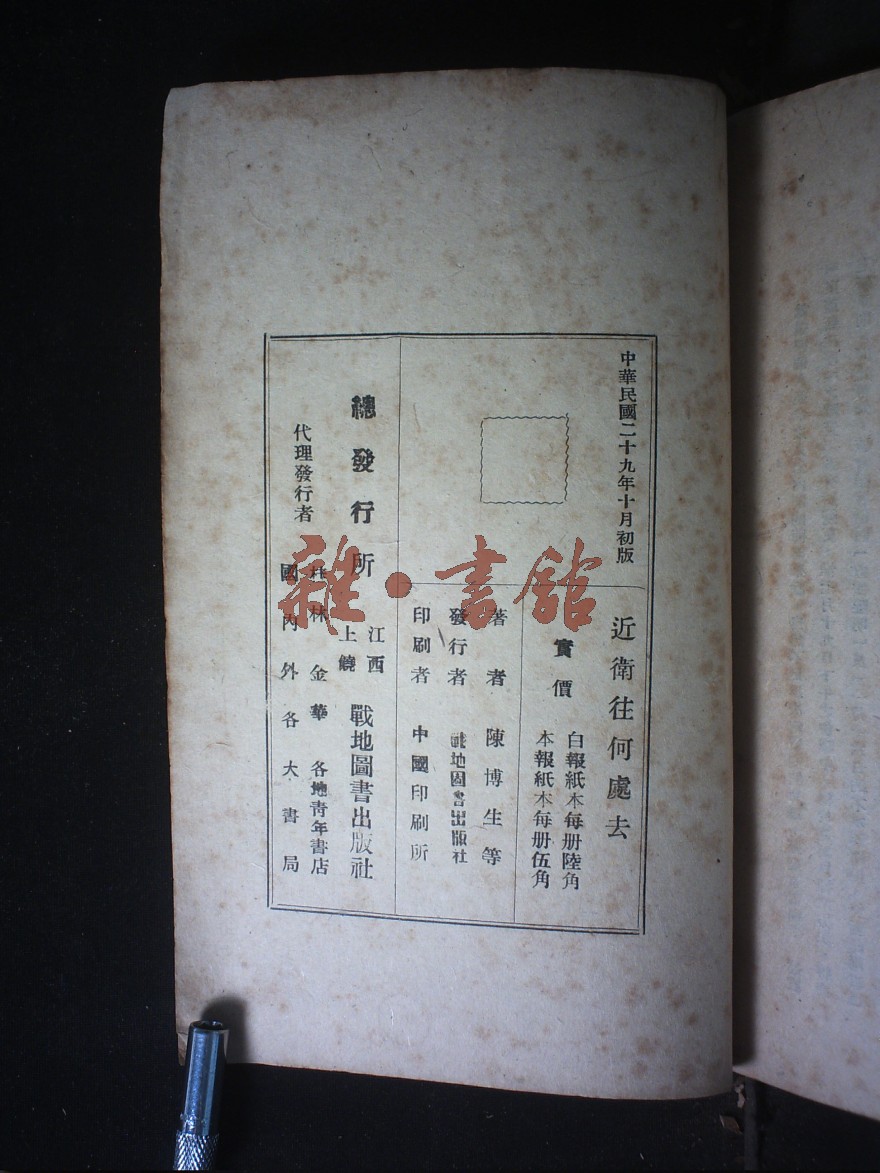 中華民國二十九年十月初版
近衛往何處去
實價
白報紙本每册陸角
本報紙本每册伍角
著者 陳博生等
發行者 戰地圖書出版社
印刷者 中國印刷所
總發行所
江西
上饒
戰地圖書出版社
代理發行者
桂林 金華 各地青年書店
國內外各大書局
雜·書館